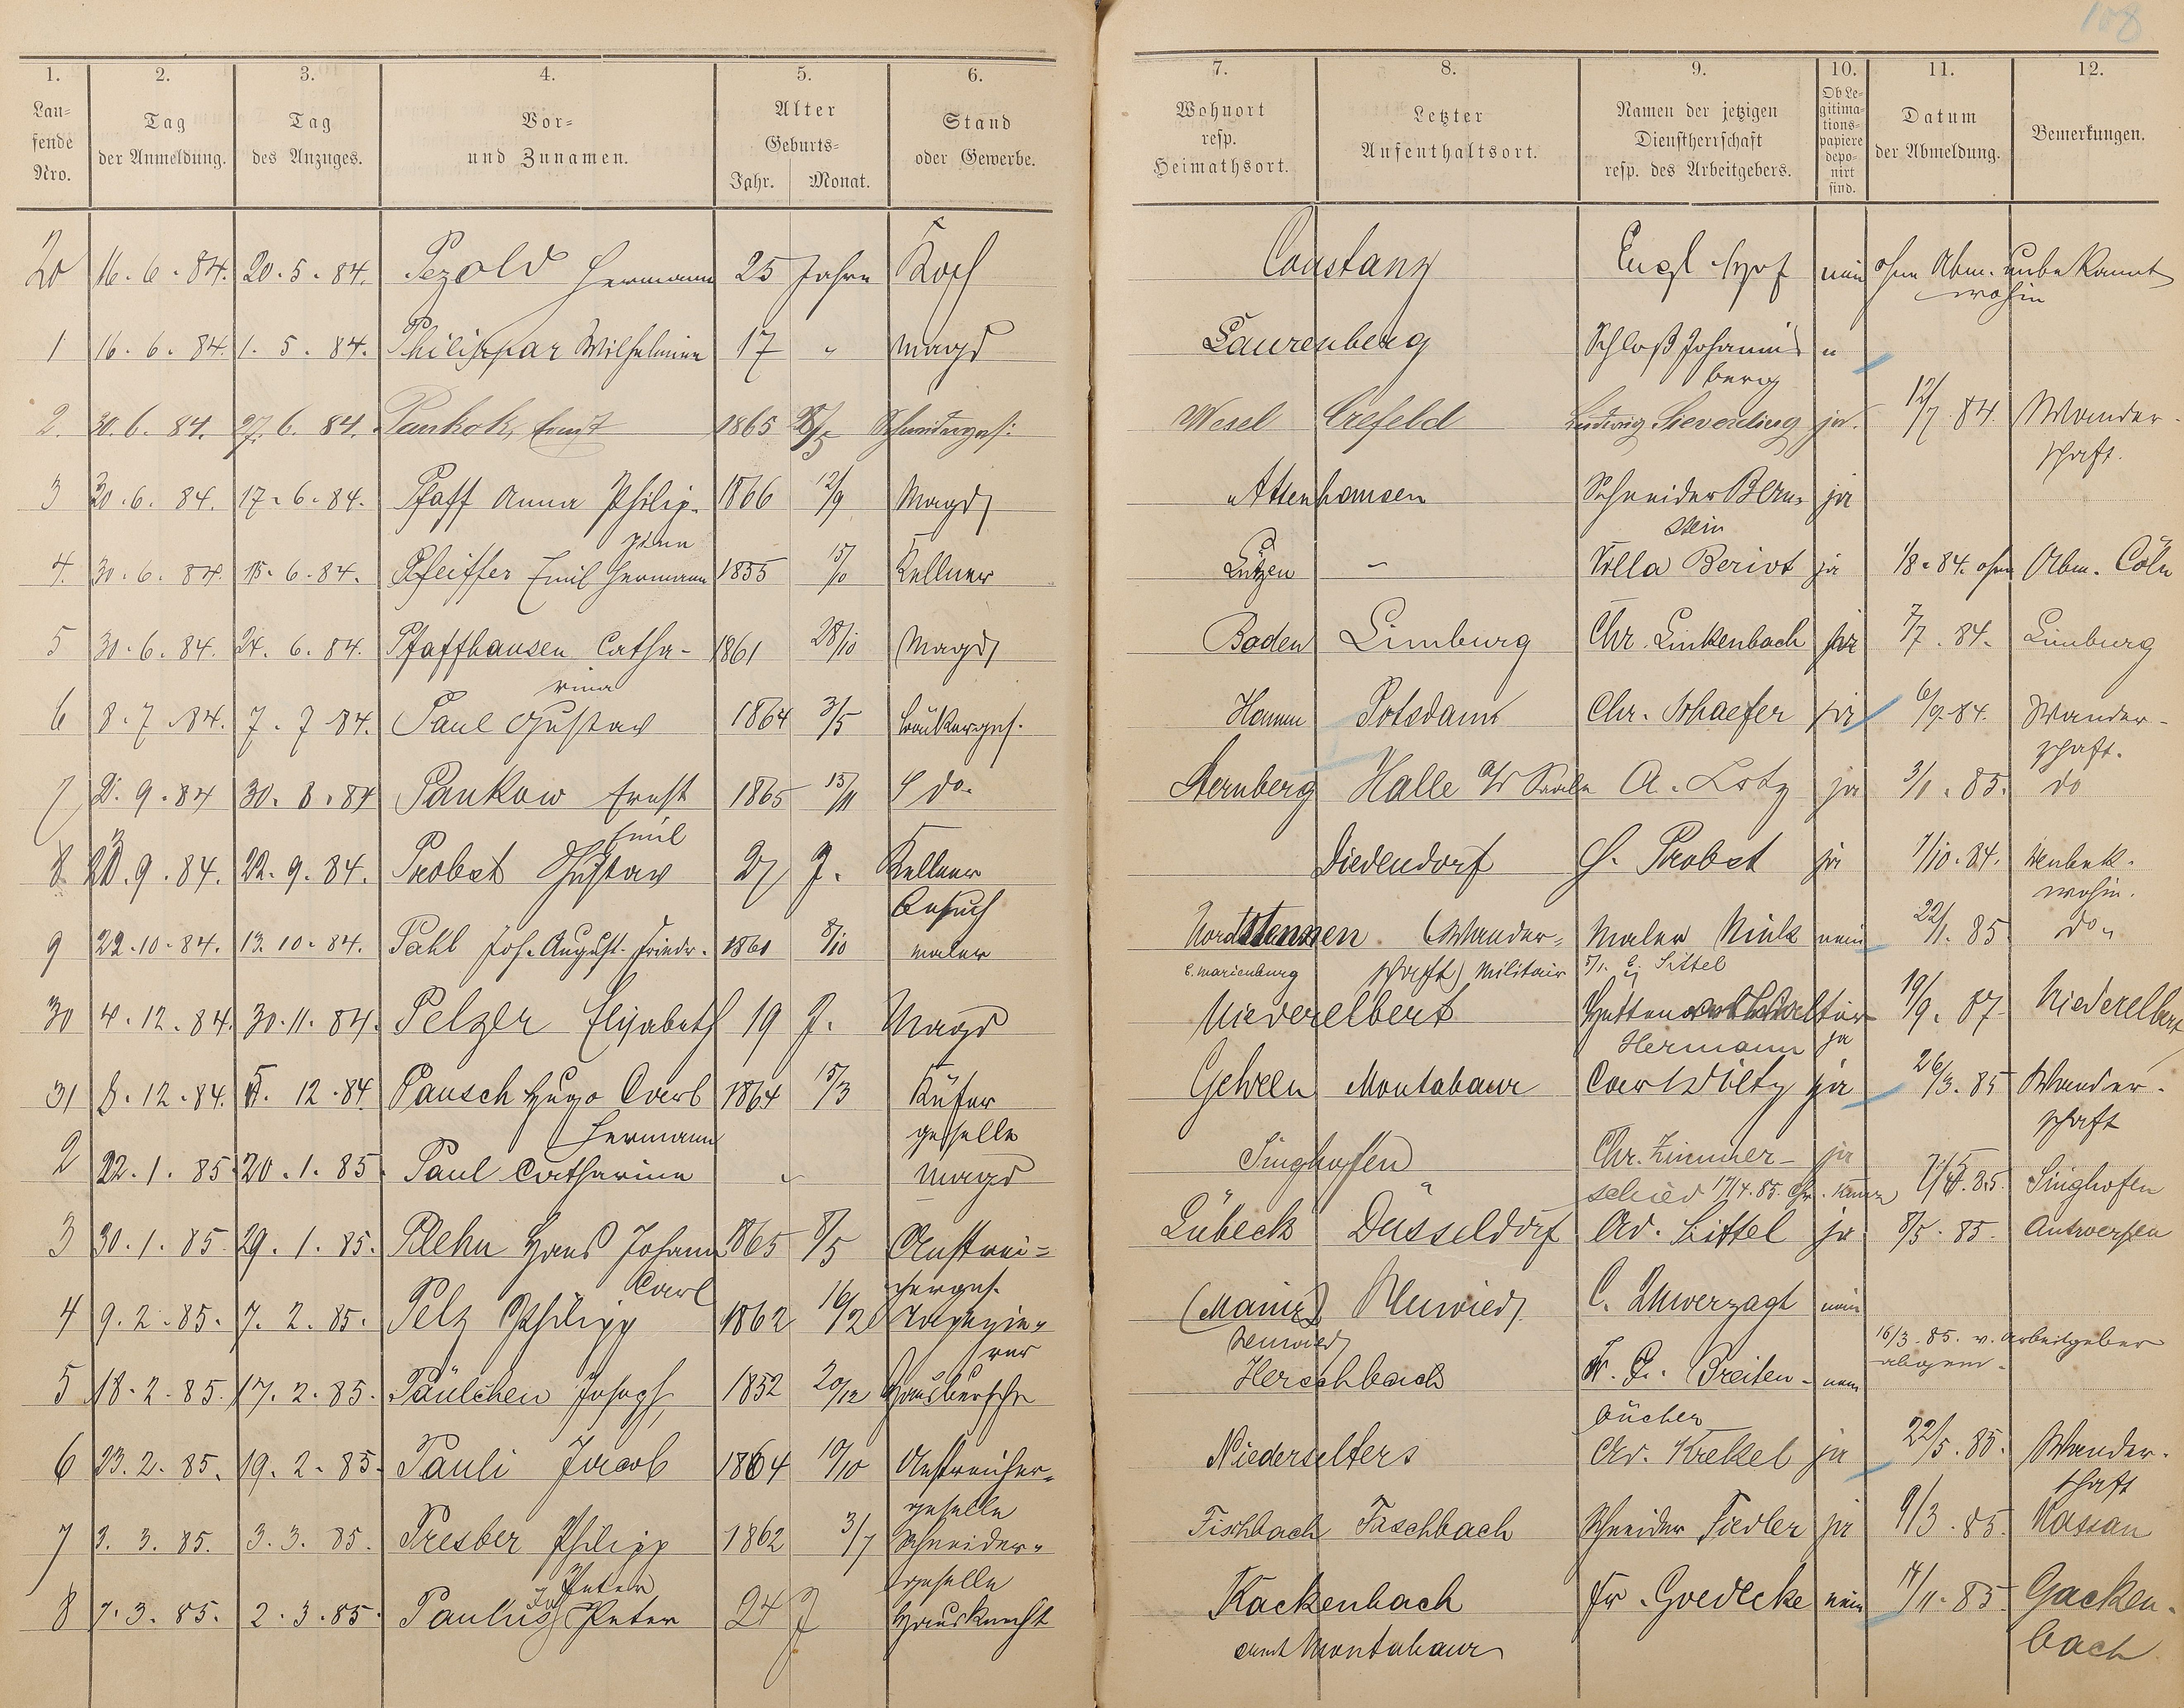 108
1. 2. 3. 4. 5. 6. 7. 8. 9. 10. 11. 12.
Lau-
fende
Nro.
Tag
der Anmeldung.
Tag
des Anzuges.
Vor-
und Zunamen.
Alter
Geburts-
Jahr. Monat.
Stand
oder Gewerbe.
Wohnort
resp.
Heimathsort.
Letzter
Aufenthaltsort.
Namen der jetzigen
Dienstherrschaft
resp. des Arbeitgebers.
Ob Le-
gitima-
tions-
papiere
depo-
nirt
sind.
Datum
der Abmeldung.
Bemerkungen.
20 16.6.84. 20.5.84. Pezold Hermann 25 Jahre Koch Constanz Engl Hof nein ohne Abm. unbekannt
wohin
1 16.6.84. 1.5.84. Philippar Wilhelmine 17 " Magd Laurenberg Schloß Johannis "
berg
2. 30.6.84. 27.6.84. Pankok, Ernst 1865 Schneiderges: Wesel Crefeld Ludwig Sieverding ja. 12/7.84. Wander-
schaft.
3 30.6.84. 17.6.84. Pfaff Anna Philip- 1866 12/9 Magd Attenhausen Schneider Bern- ja
pine stein
4. 30.6.84. 15.6.84. Pfeiffer Emil Hermann 1855 15/10 Kellner Lützen - Villa Beriot ja 1/8.84. ohne Abm. Cöln
5 30.6.84. 24.6.84. Pfaffhausen Catha- 1861 28/10 Magd Baden Limburg Chr. Linkenbach ja 7/7.84. Limburg
rina
6 8.7.84. 7.7.84. Paul Gustav 1864 3/5 Bäckerges. Hamm Potsdam Chr. Schaefer ja 6/9.84. Wander-
schaft.
7 2.9.84 30.8.84 Pankow Ernst 1865 13/11 do. Sternberg Halle a/d Saale A. Lotz ja 3/1.85. do
Emil
8 23.9.84. 22.9.84. Probst Gustav 27 J. Kellner Diedendorf G. Probst ja 1/10.84. Unbek.
Besuch wohin.
9 22.10.84. 13.10.84. Pahl Joh. August Friedr. 1861 8/10 Maler Nordstemmen (Wander- Maler Nink nein 22/1.85 do.
b. Marienburg schaft) Militair Sittel
30 4.12.84. 30.11.84. Pelzer Elisabeth 19 J. Magd Niederelbert 19/9.87. Niederelbert
Hermann ja
31 8.12.84. 12.84. Pausch Hugo Carl 1864 15/3 Küfer Gehren Montabaur Carl Wiltz ja 26/3.85 Wander-
Hermann geselle schaft
2 22.1.85 20.1.85. Paul Catharina " Magd Singhofen " Chr. Zimmer- ja Singhofen
schied 17/4.85. Chr.
3 30.1.85. 29.1.85. Plehn Hans Johann 1865 8/5 Anstrei- Lübeck Düsseldorf Ad. Sittel ja 8/5.85. Antwerpen
Carl cherges.
4 9.2.85. 7.2.85. Pelz Philipp 1862 16/2 Tapezie- (Mainz) Neuwied C. Unverzagt nein
rer Neuwied
5 18.2.85. 17.2.85. Päulchen Joseph 1852 20/12 Hausbursche Herschbach Breiten- nein 16/3.85. v. Arbeitgeber
bücher abgem.
6 23.2.85. 19.2.85. Pauli Jacob 1864 10/10 Anstreicher- Niederselters Ad. Krekel ja 22/5.85. Wander-
geselle schaft
7 3.3.85. 3.3.85. Presber Philipp 1862 3/7 Schneider- Fischbach Fischbach Schneider Fiedler ja 9/3.85. Nassau
Peter geselle
8 7.3.85. 2.3.85. Paulus Peter 24 J Hausknecht Kackenbach Fr. Goedecke nein 14/11.85. Gacken-
Amt Montabaur bach